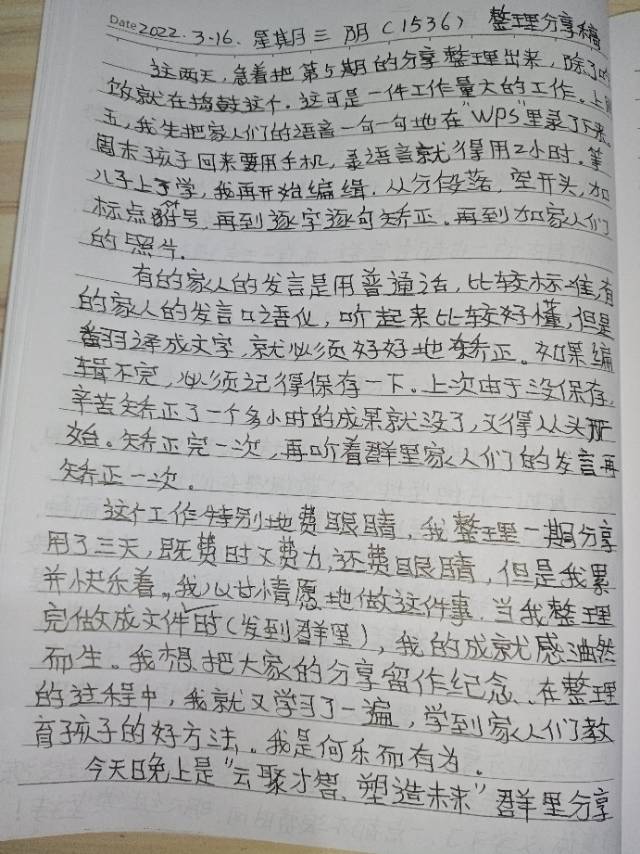 Date 2022.3.16. 星期三 阴 (1536) 整理分享稿
这两天,急着把第5期的分享整理出来,除了吃
饭就在捣鼓这个。这可是一件工作量大的工作。上周
五,我先把家人们的语音一句一句地在"WPS"里录了下来。
周末孩子回来要用手机,录语音就得用2小时。等
儿子上了学,我再开始编缉,从分段落,空开头,加
标点符号,再到逐字逐句矫正。再到加家人们
的照片。
有的家人的发言是用普通话,比较标准,有
的家人的发言口语化,听起来比较好懂,但是
翻译成文字,就必须好好地矫正。如果编
辑不完,必须记得保存一下。上次由于没保存,
辛苦矫正了一个多小时的成果就没了,又得从头开
始。矫正完一次,再听着群里家人们的发言再
矫正一次。
这个工作特别地费眼睛,我整理一期分享
用了三天,既费时又费力,还费眼睛,但是我累
并快乐着。我心甘情愿地做这件事。当我整理
完做成文件时(发到群里),我的成就感油然
而生。我想把大家的分享留作纪念、在整理
的过程中,我就又学习了一遍,学到家人们教
育孩子的好方法。我是何乐而有为。
今天晚上是"云聚才智、塑造未来"群里分享